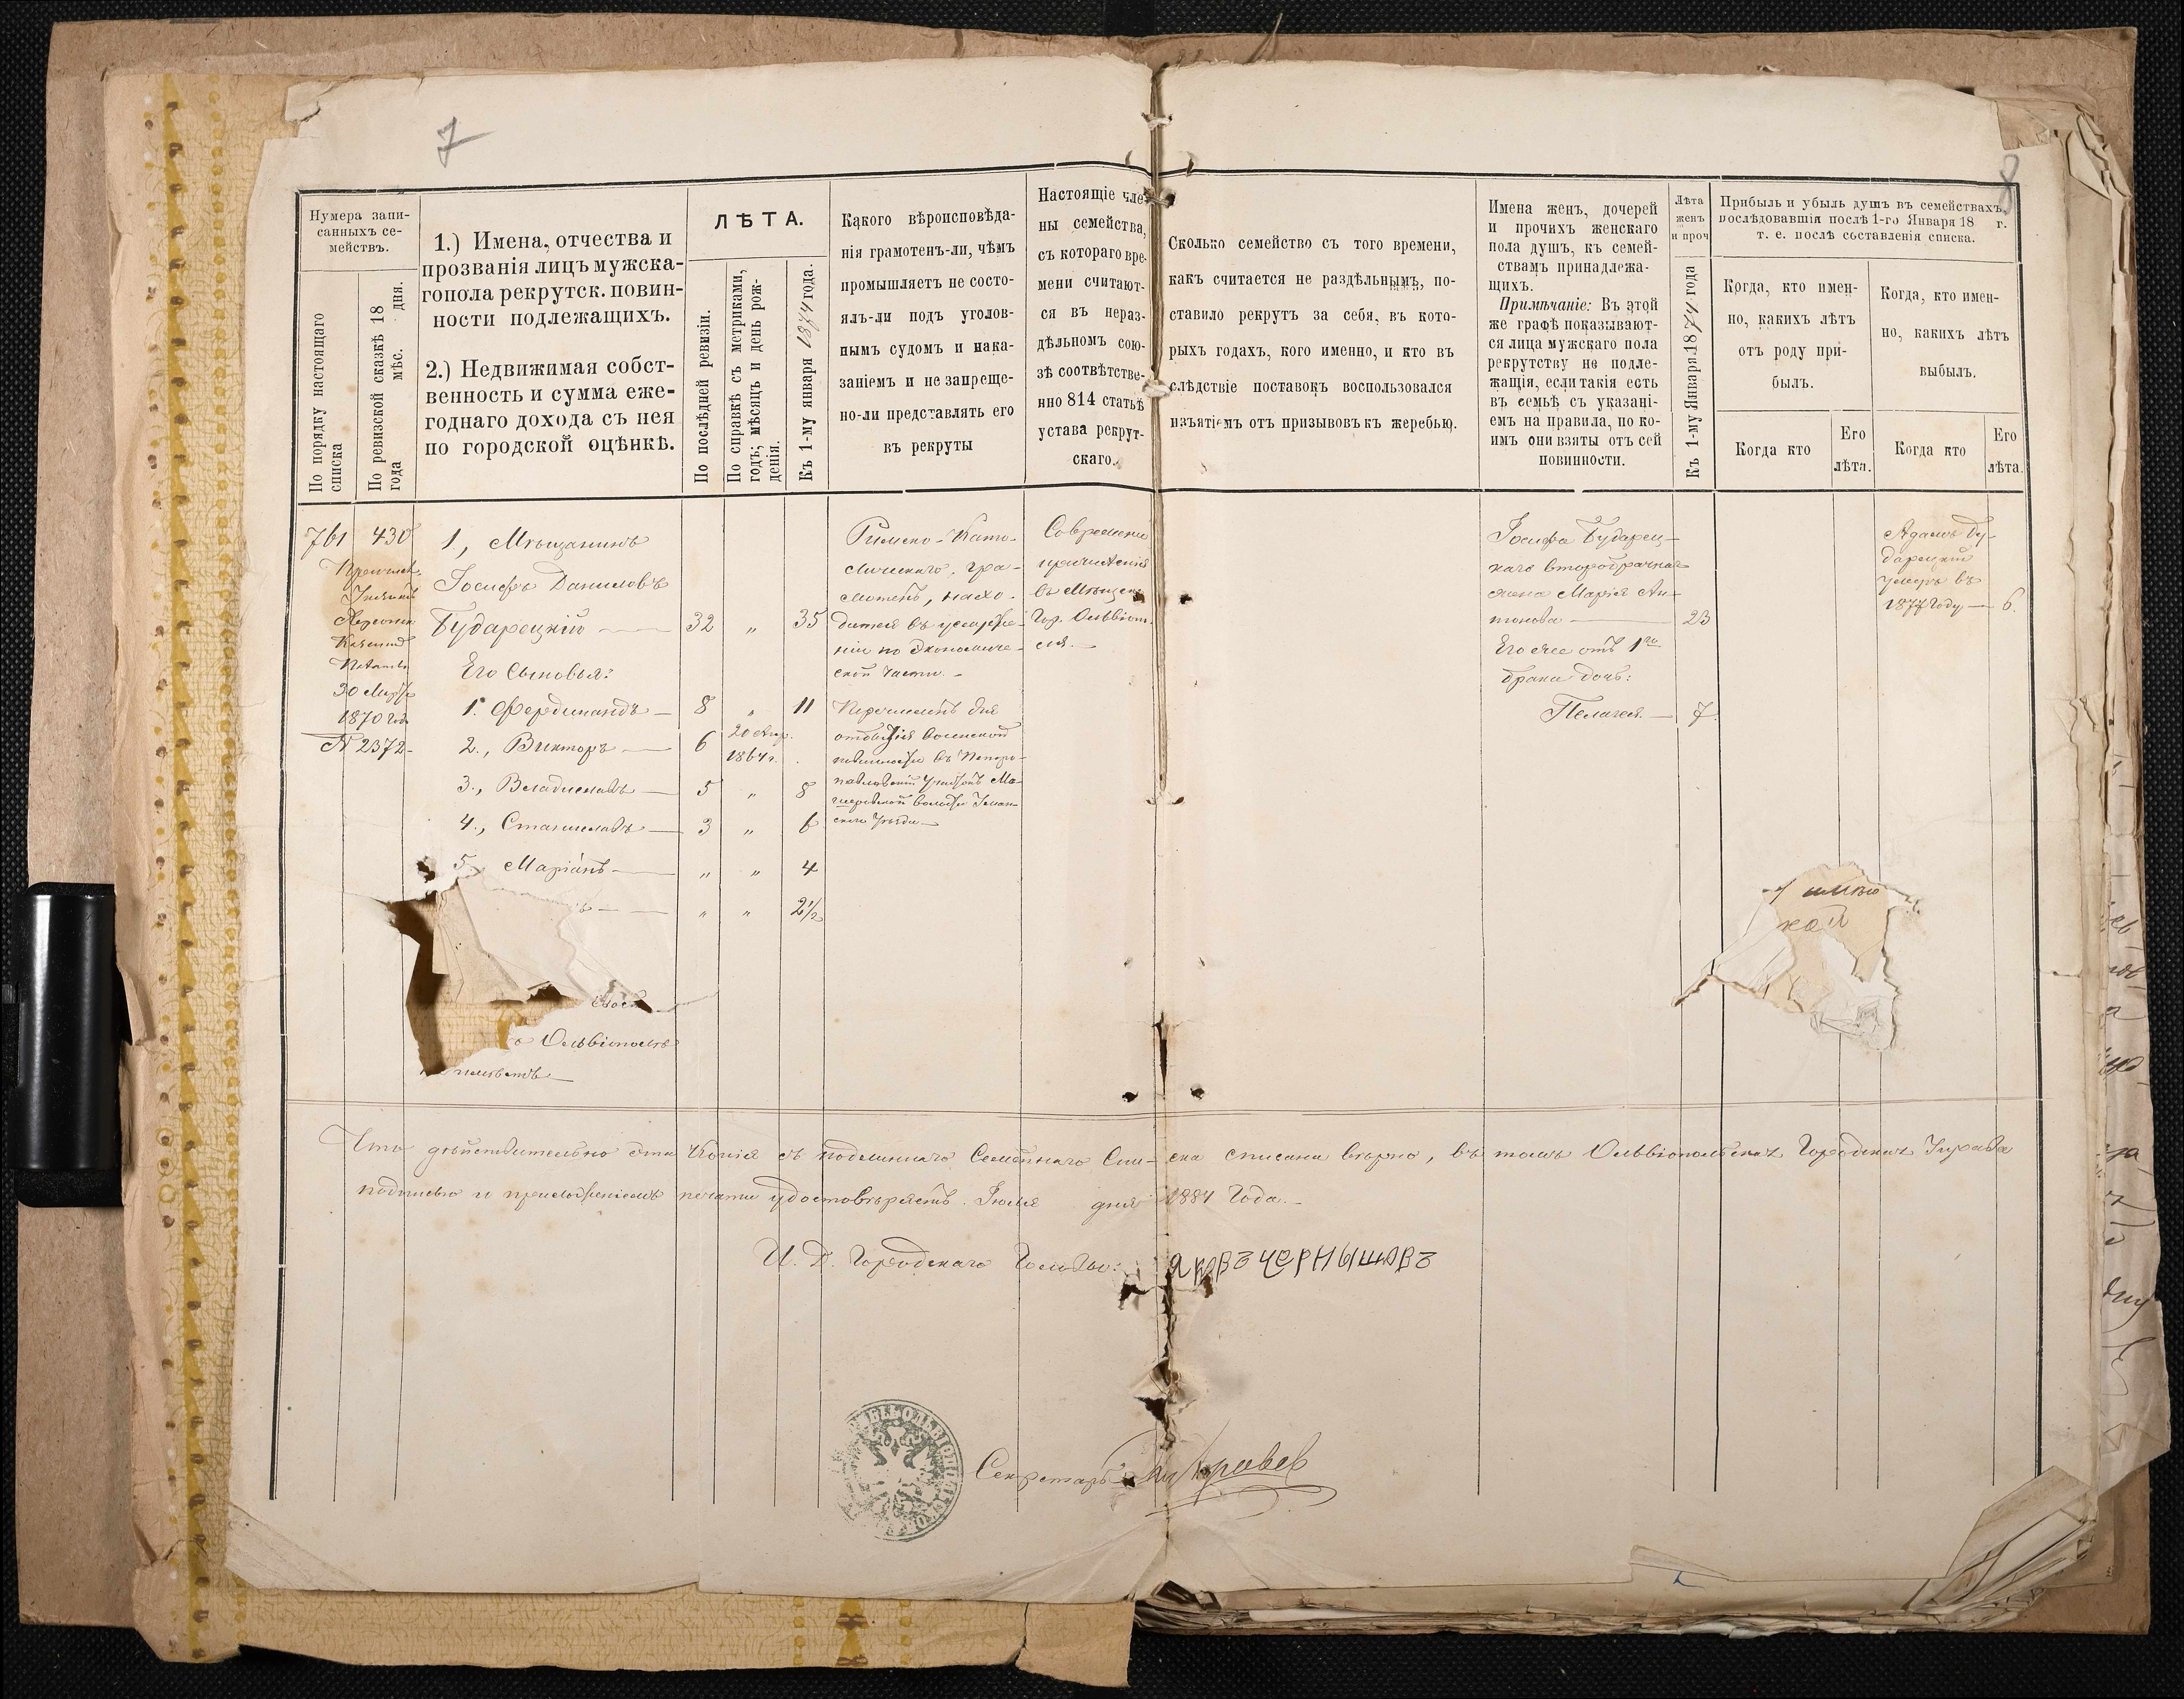 7
8
Нумера запи-
санныхъ се-
мействъ.
По порядку настоящаго
списка
По ревизской сказкѣ 18
года мѣс. дня.
1.) Имена, отчества и
прозванія лицъ мужска-
го пола рекрутск. повин-
ности подлежащихъ.
2.) Недвижимая собст-
венность и сумма еже-
годнаго дохода съ нея
по городской оцѣнкѣ.
ЛѢТА.
По послѣдней ревизіи.
По справкѣ съ метриками,
годъ, мѣсяцъ и день рож-
денія.
Къ 1-му января 1874 года.
Какого вѣроисповѣда-
нія грамотенъ-ли, чѣмъ
промышляетъ не состо-
ялъ-ли подъ уголов-
нымъ судомъ и нака-
заніемъ и не запреще-
но-ли представлять его
въ рекруты
Настоящіе чле-
ны семейства,
съ котораго вре-
мени считают-
ся въ нераз-
дѣльномъ сою-
зѣ соотвѣтстве-
нно 814 статьѣ
устава рекрут-
скаго.
Сколько семейство съ того времени,
какъ считается не раздѣльнымъ, по-
ставило рекрутъ за себя, въ кото-
рыхъ годахъ, кого именно, и кто въ
слѣдствіе поставокъ воспользовался
изъятіемъ отъ призывовъ къ жеребью.
Имена женъ, дочерей
и прочихъ женскаго
пола душъ, къ семей-
ствамъ принадлежа-
щихъ.
Примѣчаніе: Въ этой
же графѣ показывают-
ся лица мужскаго пола
рекрутству не подле-
жащія, если такія есть
въ семьѣ съ указані-
емъ на правила, по ко-
имъ они взяты отъ сей
повинности.
Лѣта
женъ
и проч
Къ 1-му Января 1874 года
Прибыль и убыль душъ въ семействахъ,
послѣдовавшія послѣ 1-го Января 18 г.
т. е. послѣ составленія списка.
Когда, кто имен-
но, какихъ лѣтъ
отъ роду при-
былъ.
Когда кто
Его
лѣта.
Когда, кто имен-
но, какихъ лѣтъ
выбылъ.
Когда кто
Его
лѣта.
761 430
Причисл.
Указомъ
Херсонск.
Казенной
Палаты
30 Марта
1870 год.
№ 2372
1, Мѣщанинъ
Іосифъ Даниловъ
Бударецкій — 32 „ 35
Его Сыновья:
1. Фердинандъ — 8 „ 11
2., Викторъ — 6 20 Апр. 1864 г.
3., Владиславъ — 5 „ 8
4., Станиславъ — 3 „ 6
5, Маріанъ — „ „ 4
— „ „ 2½
Ольвіополѣ
Римско-Като-
лическаго, гра-
мотенъ, нахо-
дится въ услуже-
ніи по Экономиче-
ской части. -
Перечисленъ для
отбытія воинской
повинности въ Петро-
павловскій Участокъ Ма-
нскаго Уѣзда —
Со времени
причисленія
въ Мѣщане
Гор. Ольвіопо-
ля. —
Іосифа Бударец-
каго второбрачная
жена Марія Ан-
тонова — 23
Его же отъ 1го
брака дочь:
Пелагея. — 7.
Адамъ Бу-
дарецкій
умеръ въ
1877 году — 6.
Что дѣйствительно эта Копія съ подлиннаго Семейнаго Спи-ска списана вѣрно, въ томъ Ольвіопольская Городская Управа
подписью и приложеніемъ печати удостовѣряетъ. Іюля дня 1884 Года. -
И. Д. Городскаго Головы: Яковъ Чернышовъ
Секретарь